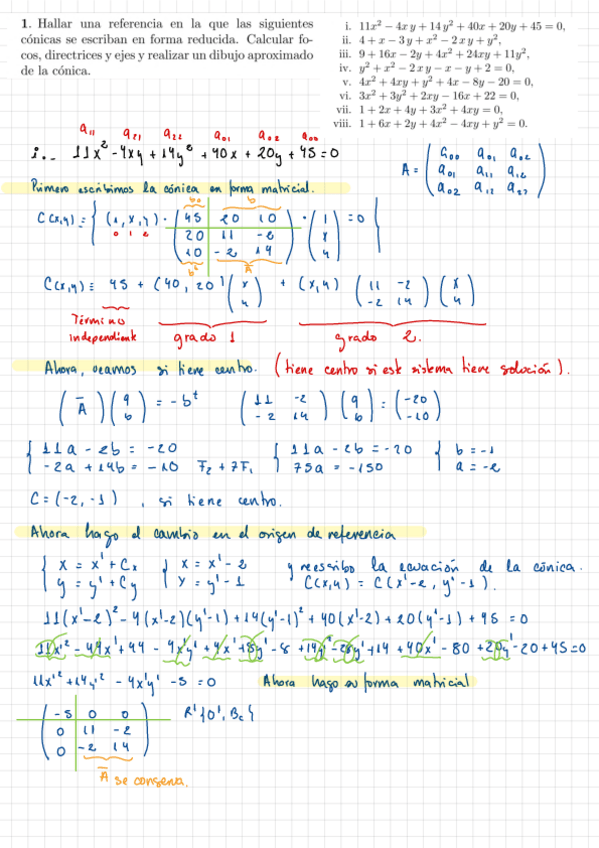 1. Hallar una referencia en la que las siguientes
cónicas se escriban en forma reducida. Calcular fo-
cos, directrices y ejes y realizar un dibujo aproximado
de la cónica.
i. 11x² − 4xy + 14y² + 40x + 20y + 45 = 0,
ii. 4 + x − 3y + x² − 2xy + y²,
iii. 9 + 16x − 2y + 4x² + 24xy + 11y²,
iv. y² + x² − 2xy − x − y + 2 = 0,
v. 4x² + 4xy + y² + 4x − 8y − 20 = 0,
vi. 3x² + 3y² + 2xy − 16x + 22 = 0,
vii. 1 + 2x + 4y + 3x² + 4xy = 0,
viii. 1 + 6x + 2y + 4x² − 4xy + y² = 0.
a₁₁ a₂₁ a₂₂ a₀₁ a₀₂ a₀₀
i.- 11x² - 4xy + 14y² + 40x + 20y + 45 = 0
A = ( a₀₀ a₀₁ a₀₂
a₀₁ a₁₁ a₁₂
a₀₂ a₁₂ a₂₂ )
Primero escribimos la cónica en forma matricial.
b₀ b
C(x,y) = { (1, x, y) · ( 45 20 10 ) · ( 1 ) = 0 }
0 1 2 ( 20 11 -2 ) ( x )
( 10 -2 14 ) ( y )
bᵗ Ā
C(x,y) ≡ 45 + (40, 20) ( x y ) + (x,y) ( 11 -2 -2 14 ) ( x y )
Término
independient grado 1 grado 2.
Ahora, veamos si tiene centro. (tiene centro si est sistema tiene solución).
( Ā ) ( a b ) = -bᵗ ( 11 -2 -2 14 ) ( a b ) = ( -20 -10 )
{ 11a - 2b = -20 { 11a - 2b = -20 { b = -1
-2a + 14b = -10 F₂ + 7F₁ 75a = -150 a = -2
C = (-2, -1) , si tiene centro.
Ahora hago el cambio en el origen de referencia
{ x = x' + Cx { x = x' - 2 y reescribo la ecuación de la cónica.
y = y' + Cy y = y' - 1 C(x,y) = C(x'-2, y'-1).
11(x'-2)² - 4(x'-2)(y'-1) + 14(y'-1)² + 40(x'-2) + 20(y'-1) + 45 = 0
11x'² - 44x' + 44 - 4x'y' + 4x' + 8y' - 8 + 14y'² - 28y' + 14 + 40x' - 80 + 20y' - 20 + 45 = 0
11x'² + 14y'² - 4x'y' - 5 = 0 Ahora hago su forma matricial
( -5 0 0 ) R'{0', Bc}
( 0 11 -2 )
( 0 -2 14 )
Ā se conserva.